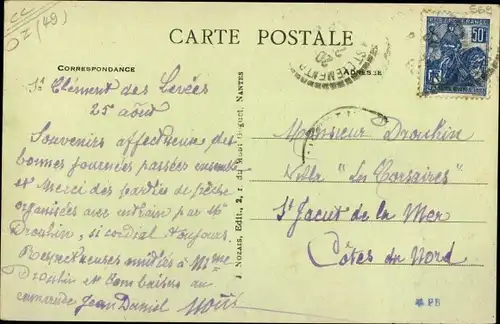 CARTE POSTALE
CORRESPONDANCE
ADRESSE
St Clément des Levées
25 août
Souvenirs affectueux des
bonnes journées passées ensemble
et Merci des partie de pêche
organisées avec entrain par Mr
Drouhin, si cordial toujours.
Respectueuses amitiés à Mme
Drouhin et bon baisers au
camarade Jean Daniel
Monsieur Drouhin
Villa "Les Corsaires"
St Jacut de la Mer
Côtes du Nord
J. NOZAIS, Edit., 2, r. du NANTES
ST CLEMENT
50c